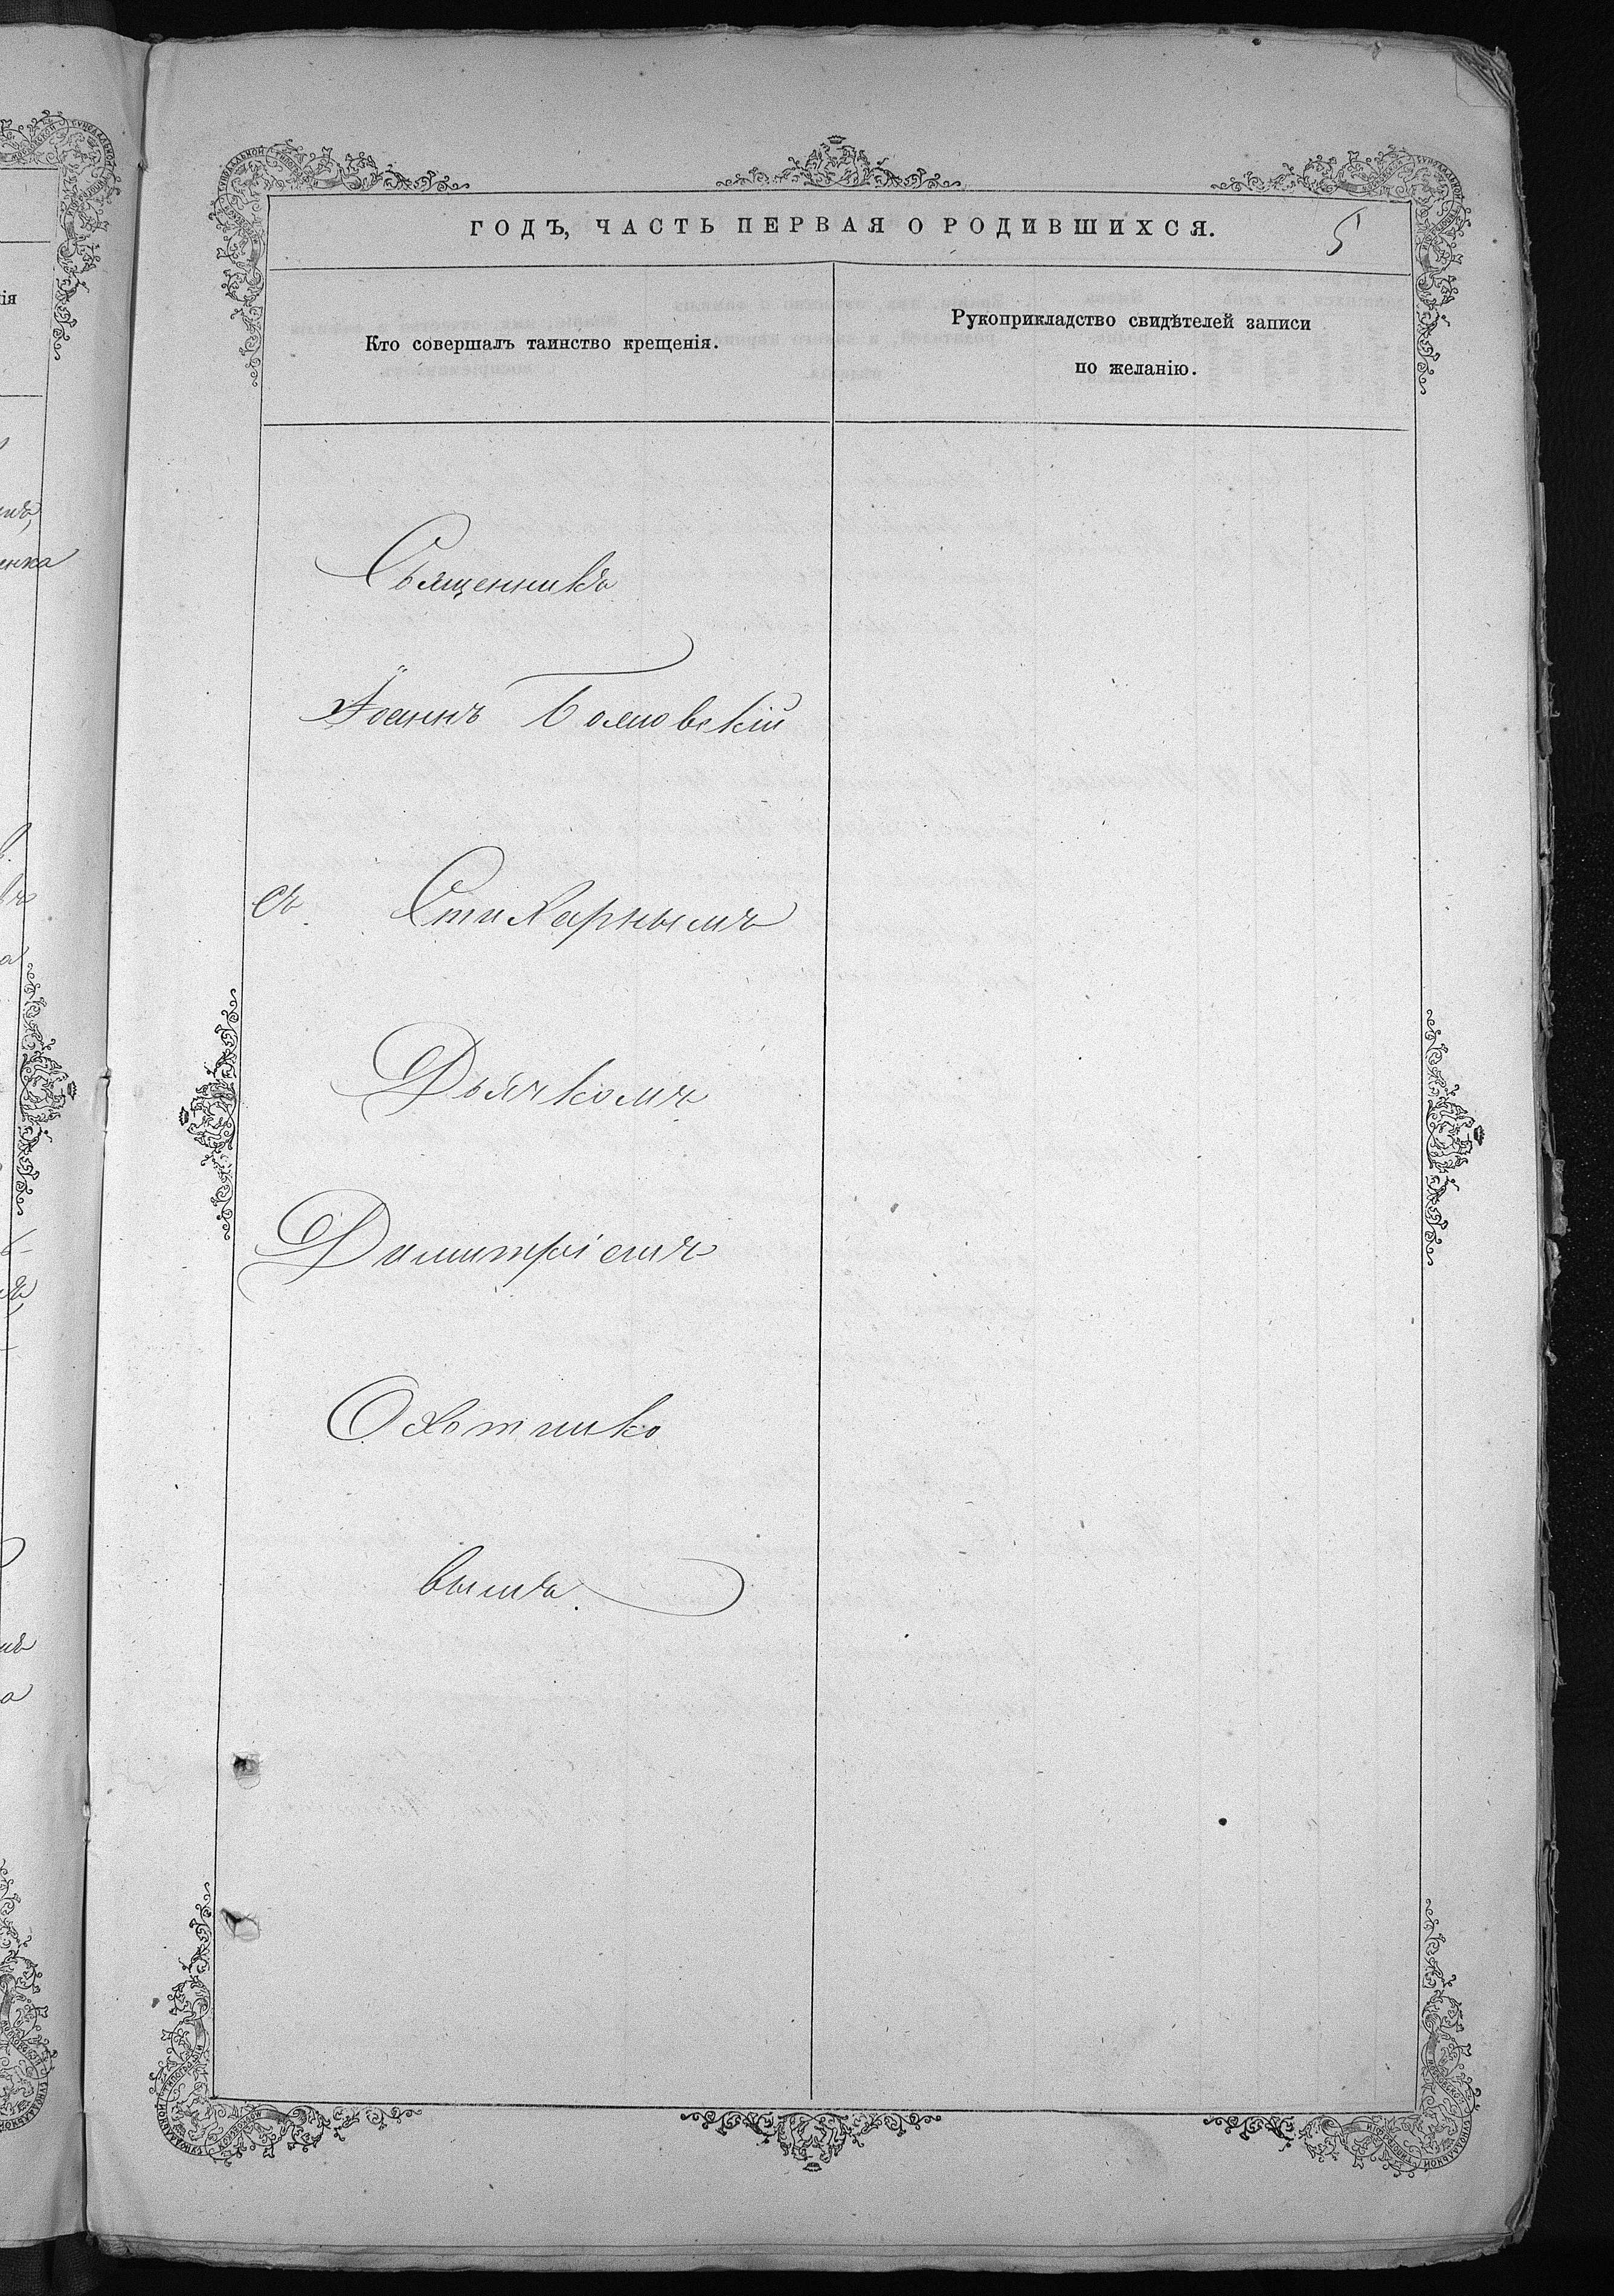 ГОДЪ, ЧАСТЬ ПЕРВАЯ О РОДИВШИХСЯ.
5
Кто совершалъ таинство крещенія.
Рукоприкладство свидѣтелей записи
по желанію.
Священникъ
Іоаннъ
съ Стихарнымъ
Дьячкомъ
Димитріемъ
Охотнико
вымъ.